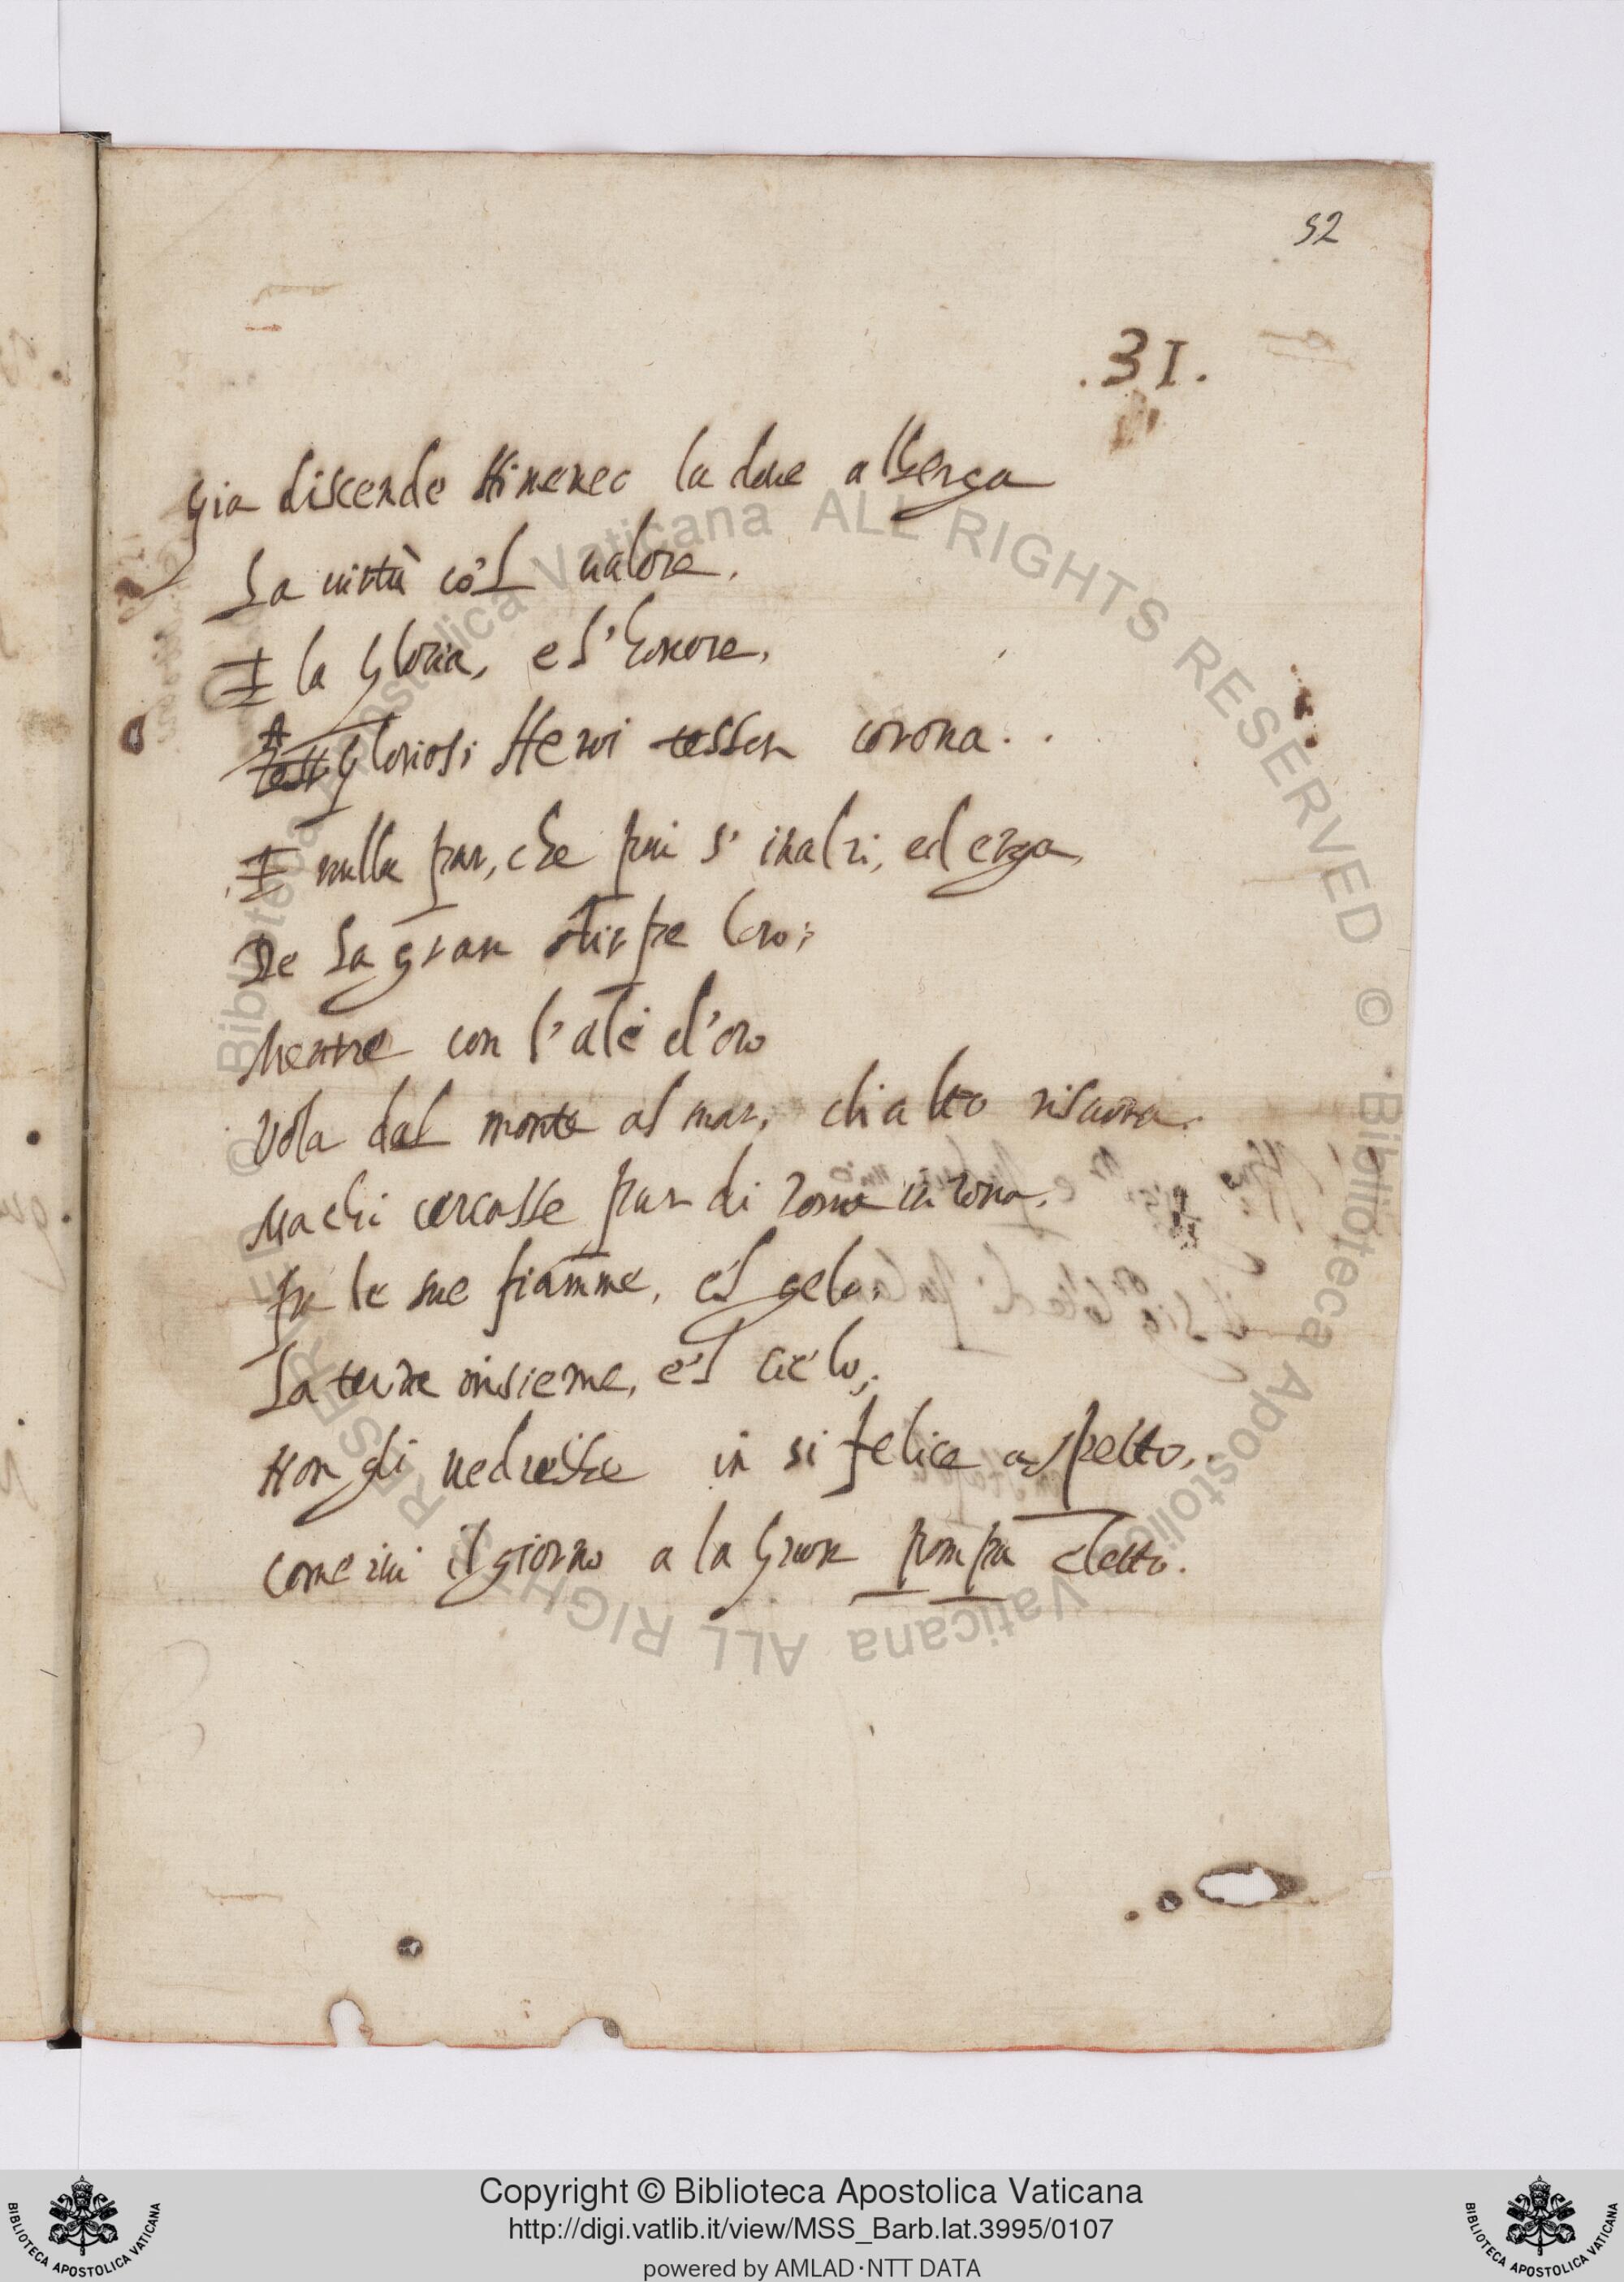 52
.31.
Gia discende Himeneo la doue alberga
La uirtù co'l ualore,
E la Gloria, e l'honore,
A Gloriosi Heroi tesser corona..
E nulla par, che piu s' inalzi, ed erga,
De la gran stirpe loro;
Mentre con l'ale d'oro
Vola dal monte al mar, ch'alto risuona.
Ma chi cercasse pur di zona in zona,
fra le sue fiamme, e'l gelo,
La terra insieme, e'l cielo,
Non gli uedrebbe in si felice aspetto,.
come il giorno a la Gran pompa eletto.
© Biblioteca Apostolica Vaticana ALL RIGHTS RESERVED © Biblioteca Apostolica Vaticana ALL RIGHTS RESERVED
Copyright © Biblioteca Apostolica Vaticana
http://digi.vatlib.it/view/MSS_Barb.lat.3995/0107
powered by AMLAD·NTT DATA
BIBLIOTECA APOSTOLICA VATICANA
BIBLIOTECA APOSTOLICA VATICANA